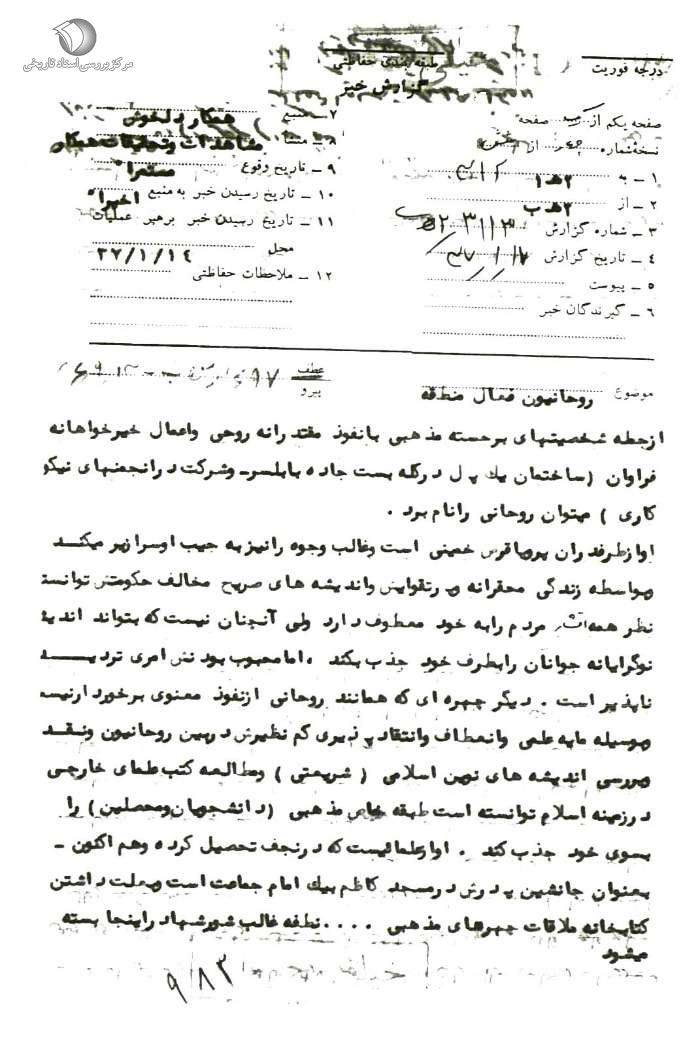 مرکز بررسی اسناد تاریخی
درجه فوریت
طبقه بندی حفاظتی
گزارش خبر
صفحه یکم از صفحه
نسخه شماره از
۱ ـ به ۲هـ۱
۲ ـ از ۲هـ ب
۳ ـ شماره گزارش
۴ ـ تاریخ گزارش
۵ ـ پیوست
۶ ـ گیرندگان خبر
۷ ـ منبع همکار دلخوش
۸ ـ منشأ مشاهدات وتحقیقات همکار
۹ ـ تاریخ وقوع مستمرا
۱۰ ـ تاریخ رسیدن خبر به منبع اخیرا
۱۱ ـ تاریخ رسیدن خبر برهبر عملیات
محل ۳۷/۱/۱۴
۱۲ ـ ملاحظات حفاظتی
عطف
پیرو
موضوع روحانیون فعال منطقه
ازجمله شخصیتهای برجسته مذهبی بانفوذ مقتدرانه روحی واعمال خیرخواهانه
فراوان (ساختمان یك پل درکله بست جاده بابلسر وشرکت درانجمنهای نیکو
کاری ) میتوان روحانی رانام برد .
اوازطرفداران خمینی است وغالب وجوه رانیزبه جیب اوسرازیر میکند
وبواسطه زندگی محقرانه و تقوایش واندیشه های صریح مخالف حکومتش توانسته
نظر مردم رابه خود معطوف دارد ولی آنچنان نیست که بتواند اندیشه
نوگرایانه جوانان رابطرف خود جذب بکند ، امامحبوب بودنش امری تردیـــد
ناپذیر است . دیگر چهره ای که همانند روحانی ازنفوذ معنوی برخوردارنیست
بوسیله مایه علمی وانعطاف وانتقادپذیری کم نظیرش دربین روحانیون ونقـد
وبررسی اندیشه های نوین اسلامی ( شریعتی ) ومطالعه کتب علمای خارجی
درزمینه اسلام توانسته است طبقه خاص مذهبی (دانشجویان ومحصلین ) را
بسوی خود جذب کند . اوازعلمائیست که درنجف تحصیل کرده وهم اکنون ـ
بعنوان جانشین پدرش درمسجد کاظم بیك امام جماعت است وبعلت داشتن
کتابخانه ملاقات چهرهای مذهبی .... نطفه غالب دراینجا بسته
میشود
۹۸۳